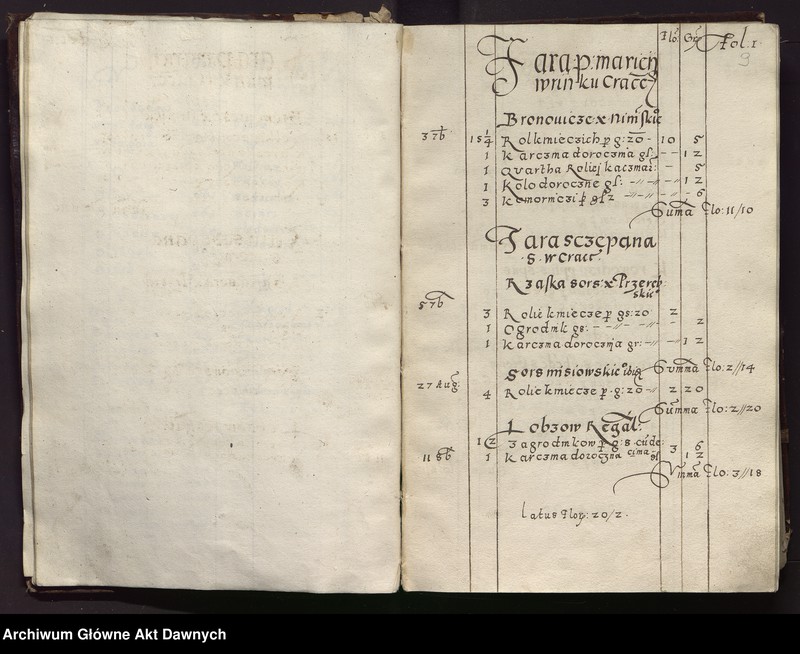 Flo: Gr: Fol. 1.
9
Fara p: mariey
w rinku Cracē
Bronovicze x niński°
3 7b 15 1/4 Rol kmieczich p g: 20 - 10 5
1 Karczma doroczna gr: - - 1 2
1 Quartha Roliej kaczmar: 5
1 Kolo doroczne gr: -//-//- 1 2
3 Komorniczi p gr 2 -//-//- 6
Suma Flo: 11/10
Fara sczepana
S. w Cracē.
Rząska sors: x Przeręb
skie°
5 7b
3 Rolie kmiecze p gs: 20 2
1 Ogrodnik gs: -//-//- 2
1 Karczma doroczna gr: -//- 1 2
Sors misiowskie° ibid Summa Flo: 2//14
27 Aug: 4 Rolie kmiecze p. g: 20 -//- 2 20
Summa Flo: 2//20
Lobzow Regal:
12 Zagrodnikow p g: 8 cūde: 3 6
11 8b 1 Karczma doroczna cima gr 1 2
Summa Flo: 3//18
Latus Flor: 20/2.
Archiwum Główne Akt Dawnych